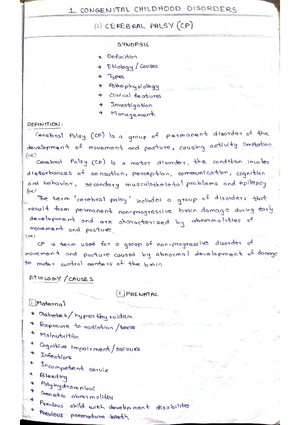 1. CONGENITAL CHILDHOOD DISORDERS
(1) CEREBRAL PALSY (CP)
SYNOPSIS
* Definition
* Etiology / Causes
* Types
* Pathophysiology
* Clinical features
* Investigation
* Management
DEFINITION:
Cerebral Palsy (CP) is a group of permanent disorders of the
development of movement and posture, causing activity limitation
(or)
Cerebral Palsy (CP) is a motor disorder, the condition involves
disturbances of sensation, perception, communication, cognition
and behavior, secondary musculoskeletal problems and epilepsy
(or)
The term 'cerebral palsy' includes a group of disorders that
result from permanent nonprogressive brain damage during early
development and are characterised by abnormalities of
movement and posture.
(or)
CP is term used for a group of non-progressive disorder of
movement and posture caused by abnormal development of damage
to motor control centers of the brain
ETIOLOGY / CAUSES
1 PRENATAL
Maternal
* Diabetes / hyperthyroidism
* Exposure to radiation / toxins
* Malnutrition
* Cognitive impairment / seizures
* Infections
* Incompetent cervix
* Bleeding
* Polyhydramnios
* Genetic abnormalities
* Previous child with development disabilities
* Previous premature birth